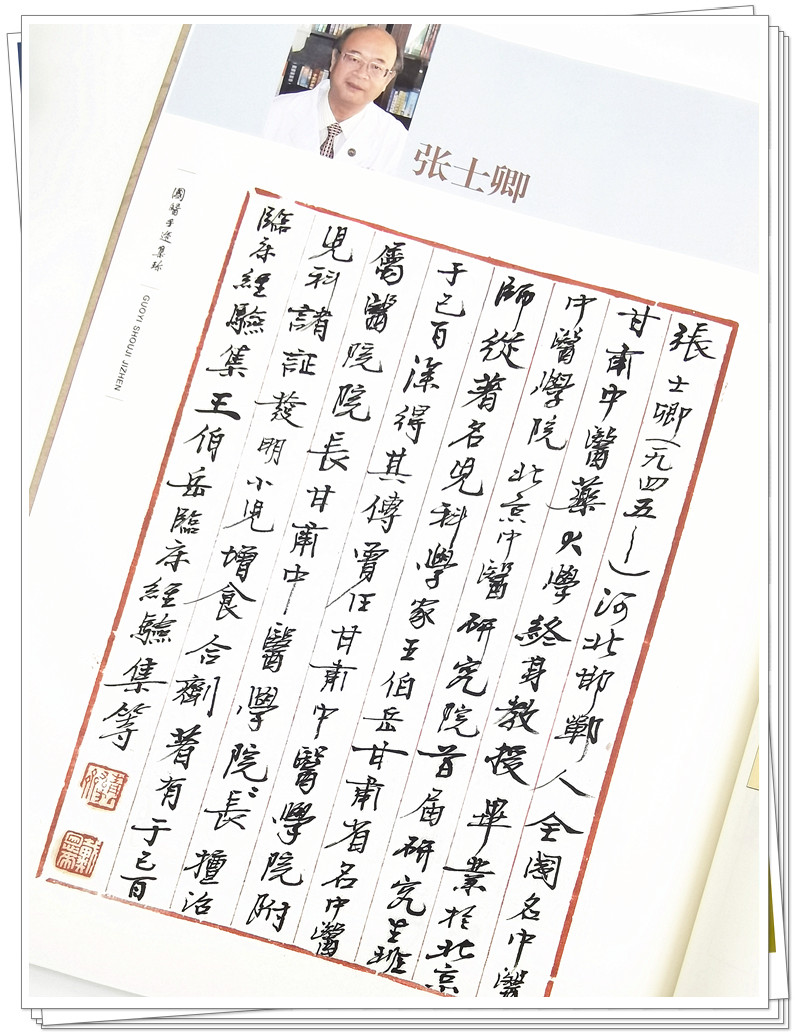 张士卿
張士卿(一九四五—)河北邯鄲人全國名中醫
甘肅中醫藥大學終身教授畢業於北京
中醫學院北京中醫研究院首届研究生班
師從著名児科學家王伯岳甘肅省名中醫
于己百深得其傳曾任甘肅中醫學院附
屬醫院院長甘肅中醫學院〻長擅治
児科諸証發明小児增食合劑著有于己百
臨床經驗集王伯岳臨床經驗集等
國醫手迹集珍
GUOYI SHOUJI JIZHEN